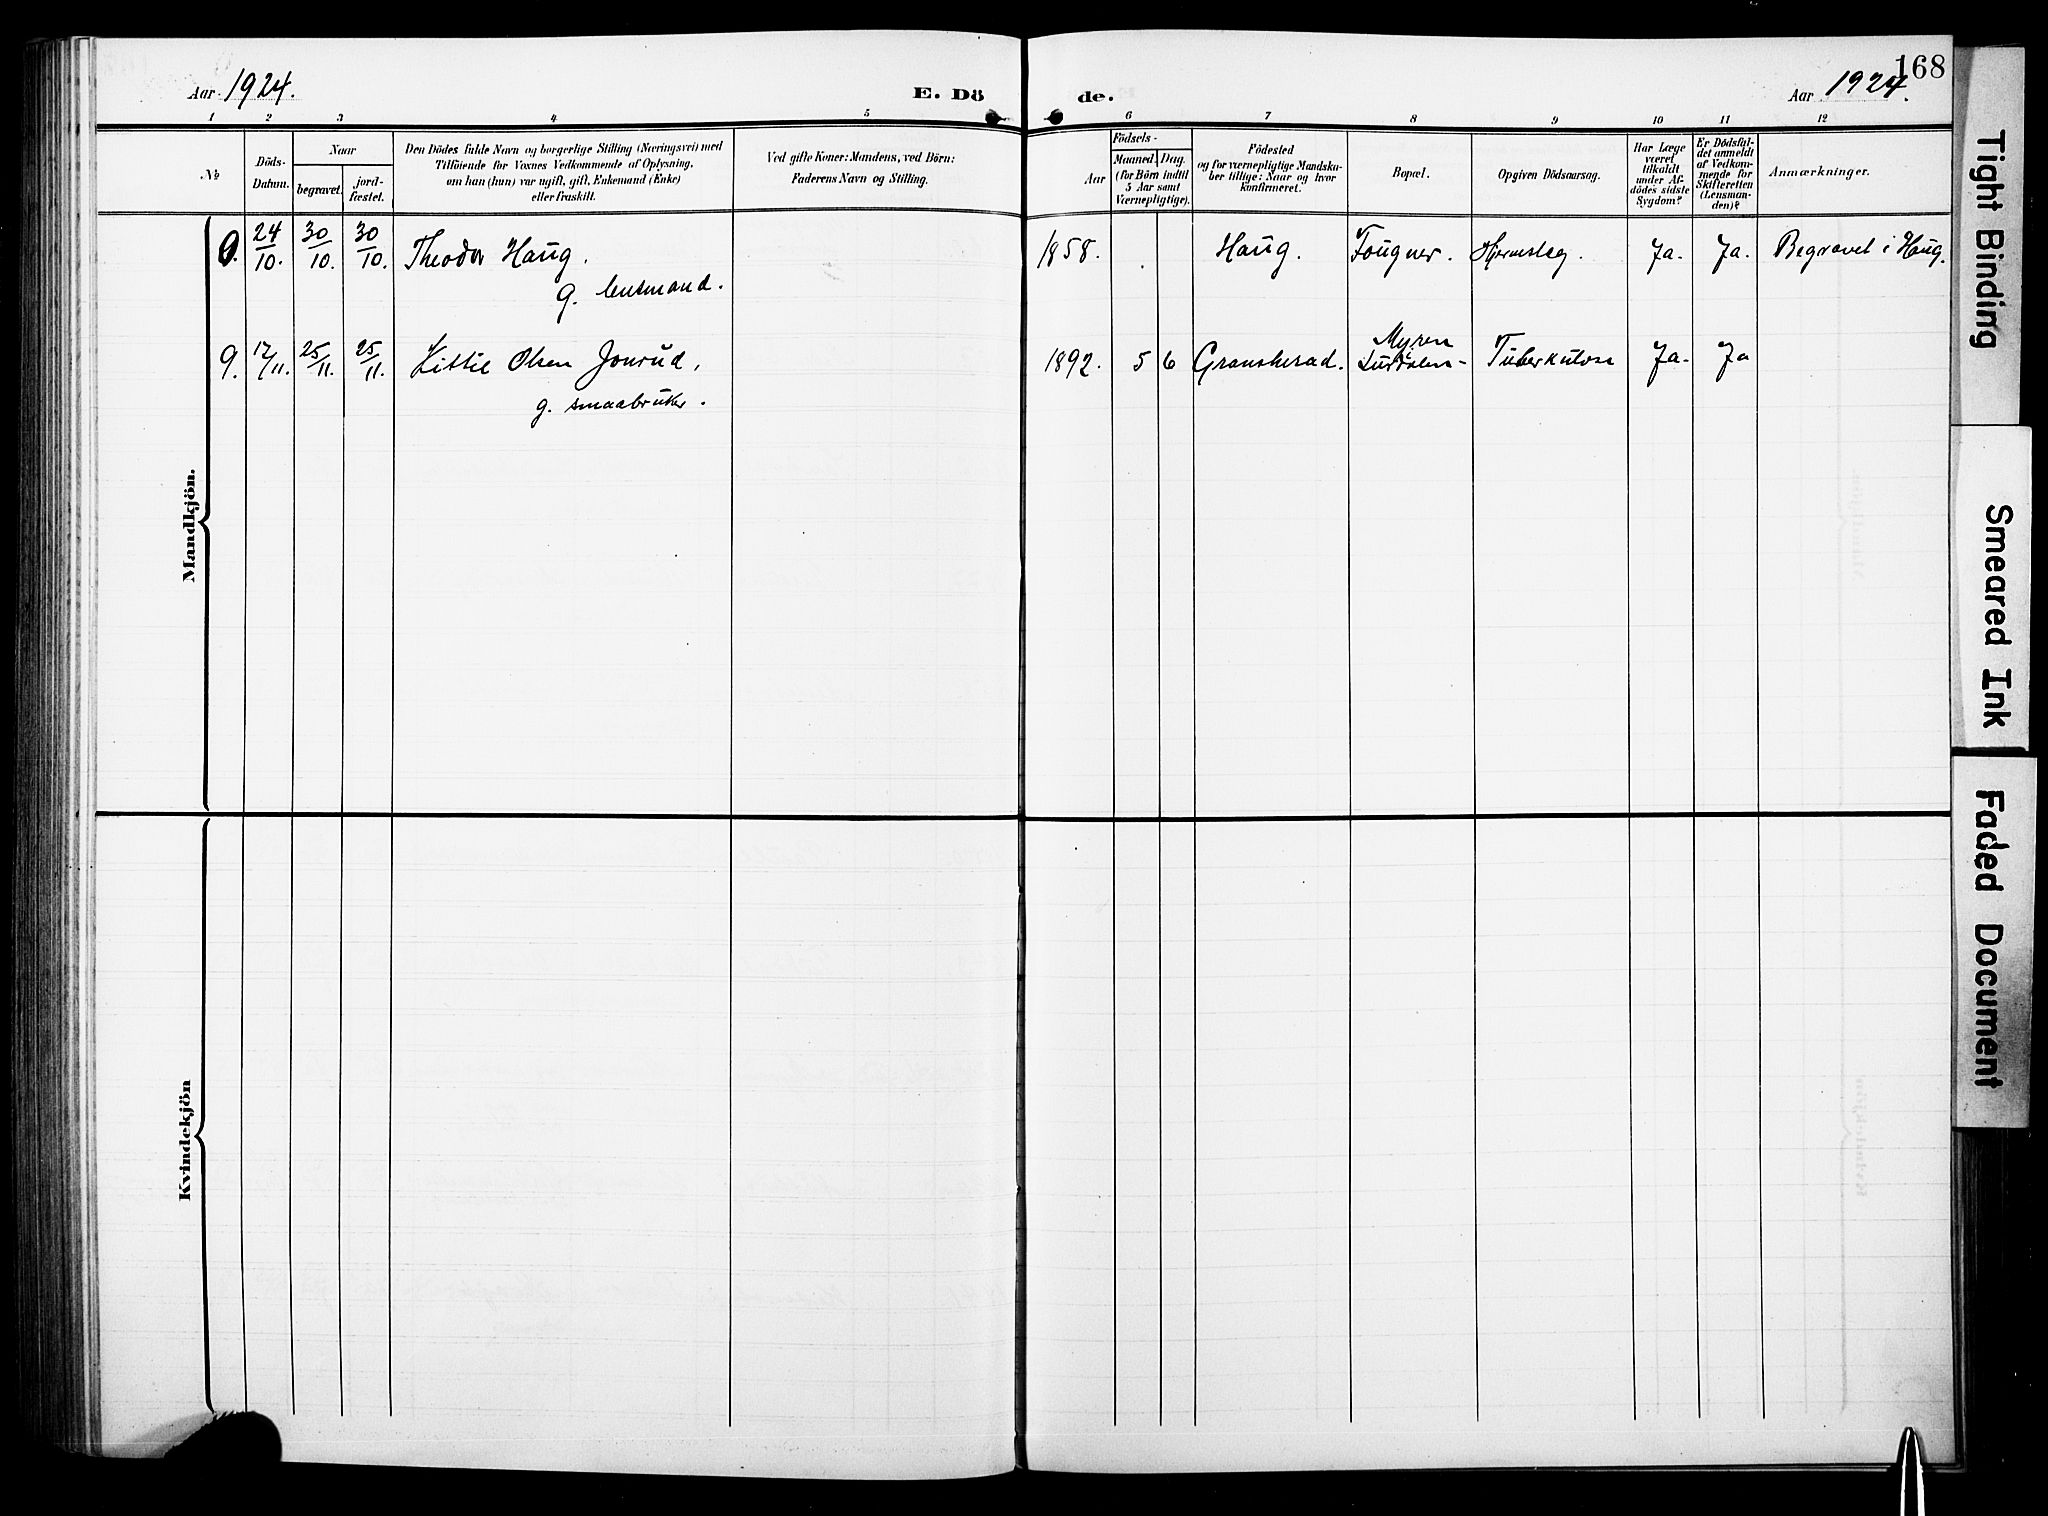 168
Aar 1924.
E. Dö de.
Aar 1924.
1 2 3 4 5 6 7 8 9 10 11 12
№
Döds-
Datum.
Naar
begravet.
jord-
fæstet.
Den Dödes fulde Navn og borgerlige Stilling (Næringsvei) med
Tilföiende for Voxnes Vedkommende af Oplysning,
om han (hun) var ugift, gift, Enkemand (Enke)
eller fraskilt.
Ved gifte Koner: Mandens, ved Börn:
Faderens Navn og Stilling.
Aar
Födsels-
Maaned. Dag.
(for Börn indtil
5 Aar samt
Værnepligtige).
Födested
og for værnepligtige Mandska-
ber tillige: Naar og hvor
konfirmeret.
Bopæl.
Opgiven Dödsaarsag.
Har Læge
været
tilkaldt
under Af-
dödes sidste
Sygdom?
Er Dödsfal-
det anmeldt
af Vedkom-
mende for
Skifteretten
(Lensman-
den)?
Anmærkninger.
Mandkjön.
24/10. 30/10. 30/10. Theodor Haug. 1858. Haug. Fougner. Hjerneslag. Ja. Ja. Begravet i Haug.
g. lensmand.
Myren
9. 17/11. 25/11. 25/11. Kittil Olsen Jonrud, 1892. 5 6 Gransherad. Tuberkulose Ja. Ja
g. smaabruker.
Kvindekjön
Tight Binding
Smeared Ink
Faded Document